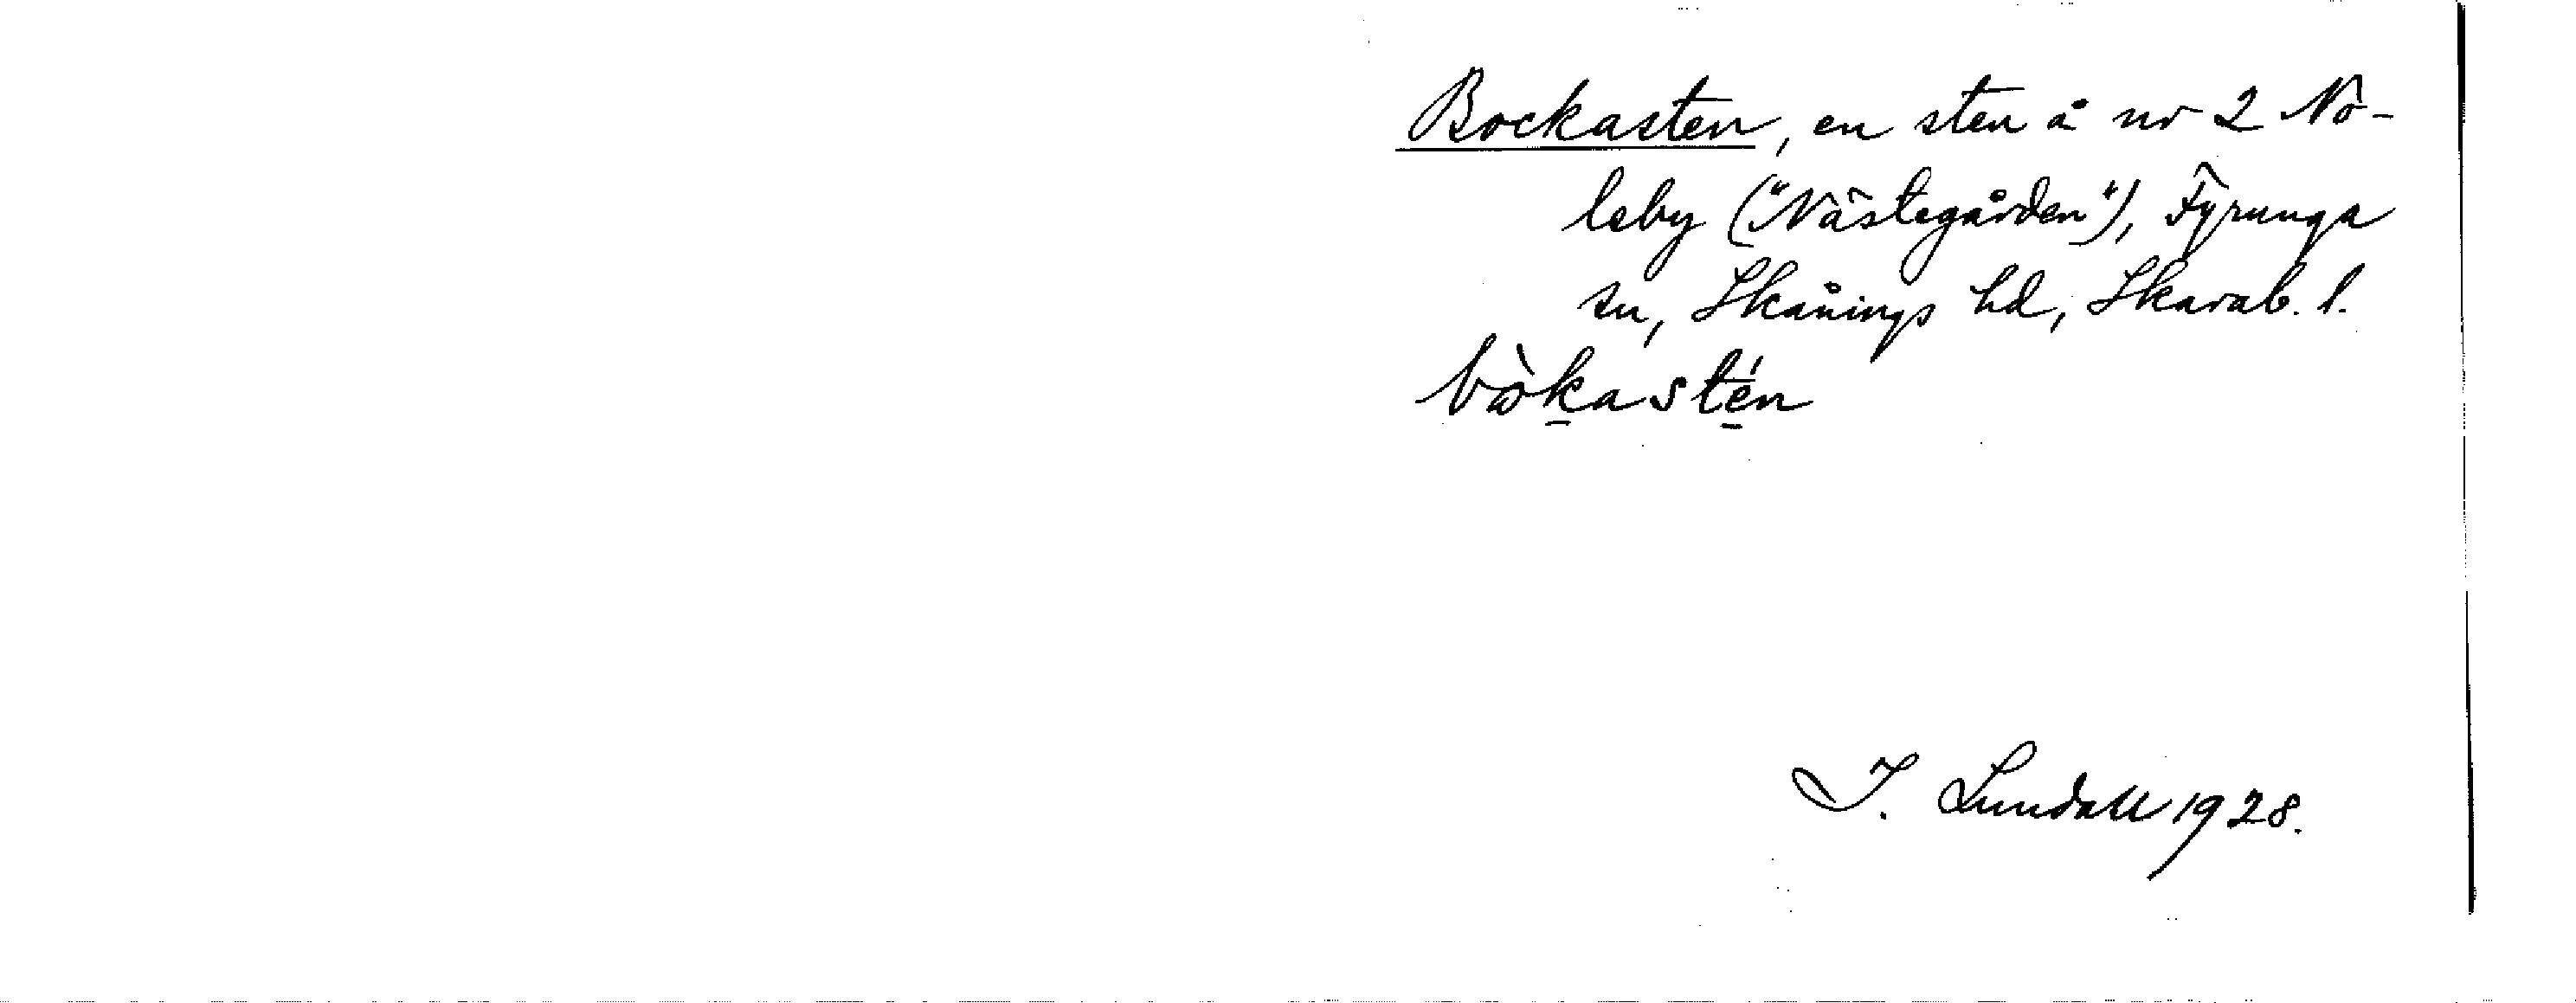 Bockasten, en sten å nr 2 Nö-
leby ("Västegården"), Fyrunga
sn, Skånings hd, Skarab. l.
bòkastén
I. Lundahl 1928.